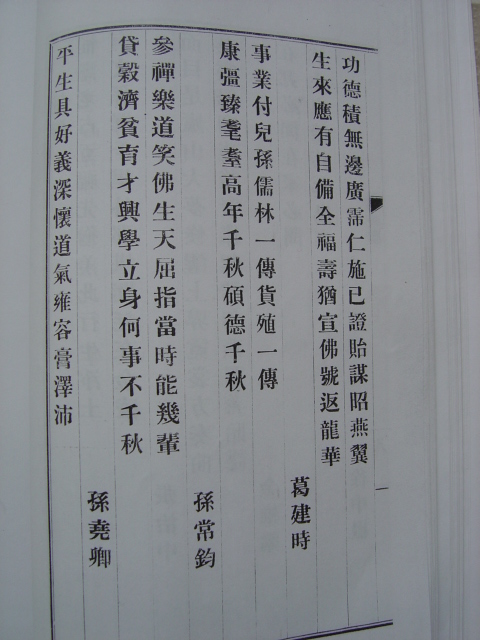 功德積無邊廣霈仁施已證貽謀昭燕翼
生來應有自備全福壽猶宣佛號返龍華
葛建時
事業付兒孫儒林一傳貨殖一傳
康彊臻耄耋高年千秋碩德千秋
孫常鈞
參禪樂道笑佛生天屈指當時能幾輩
貸穀濟貧育才興學立身何事不千秋
孫堯卿
平生具好義深懷道氣雍容膏澤沛
一